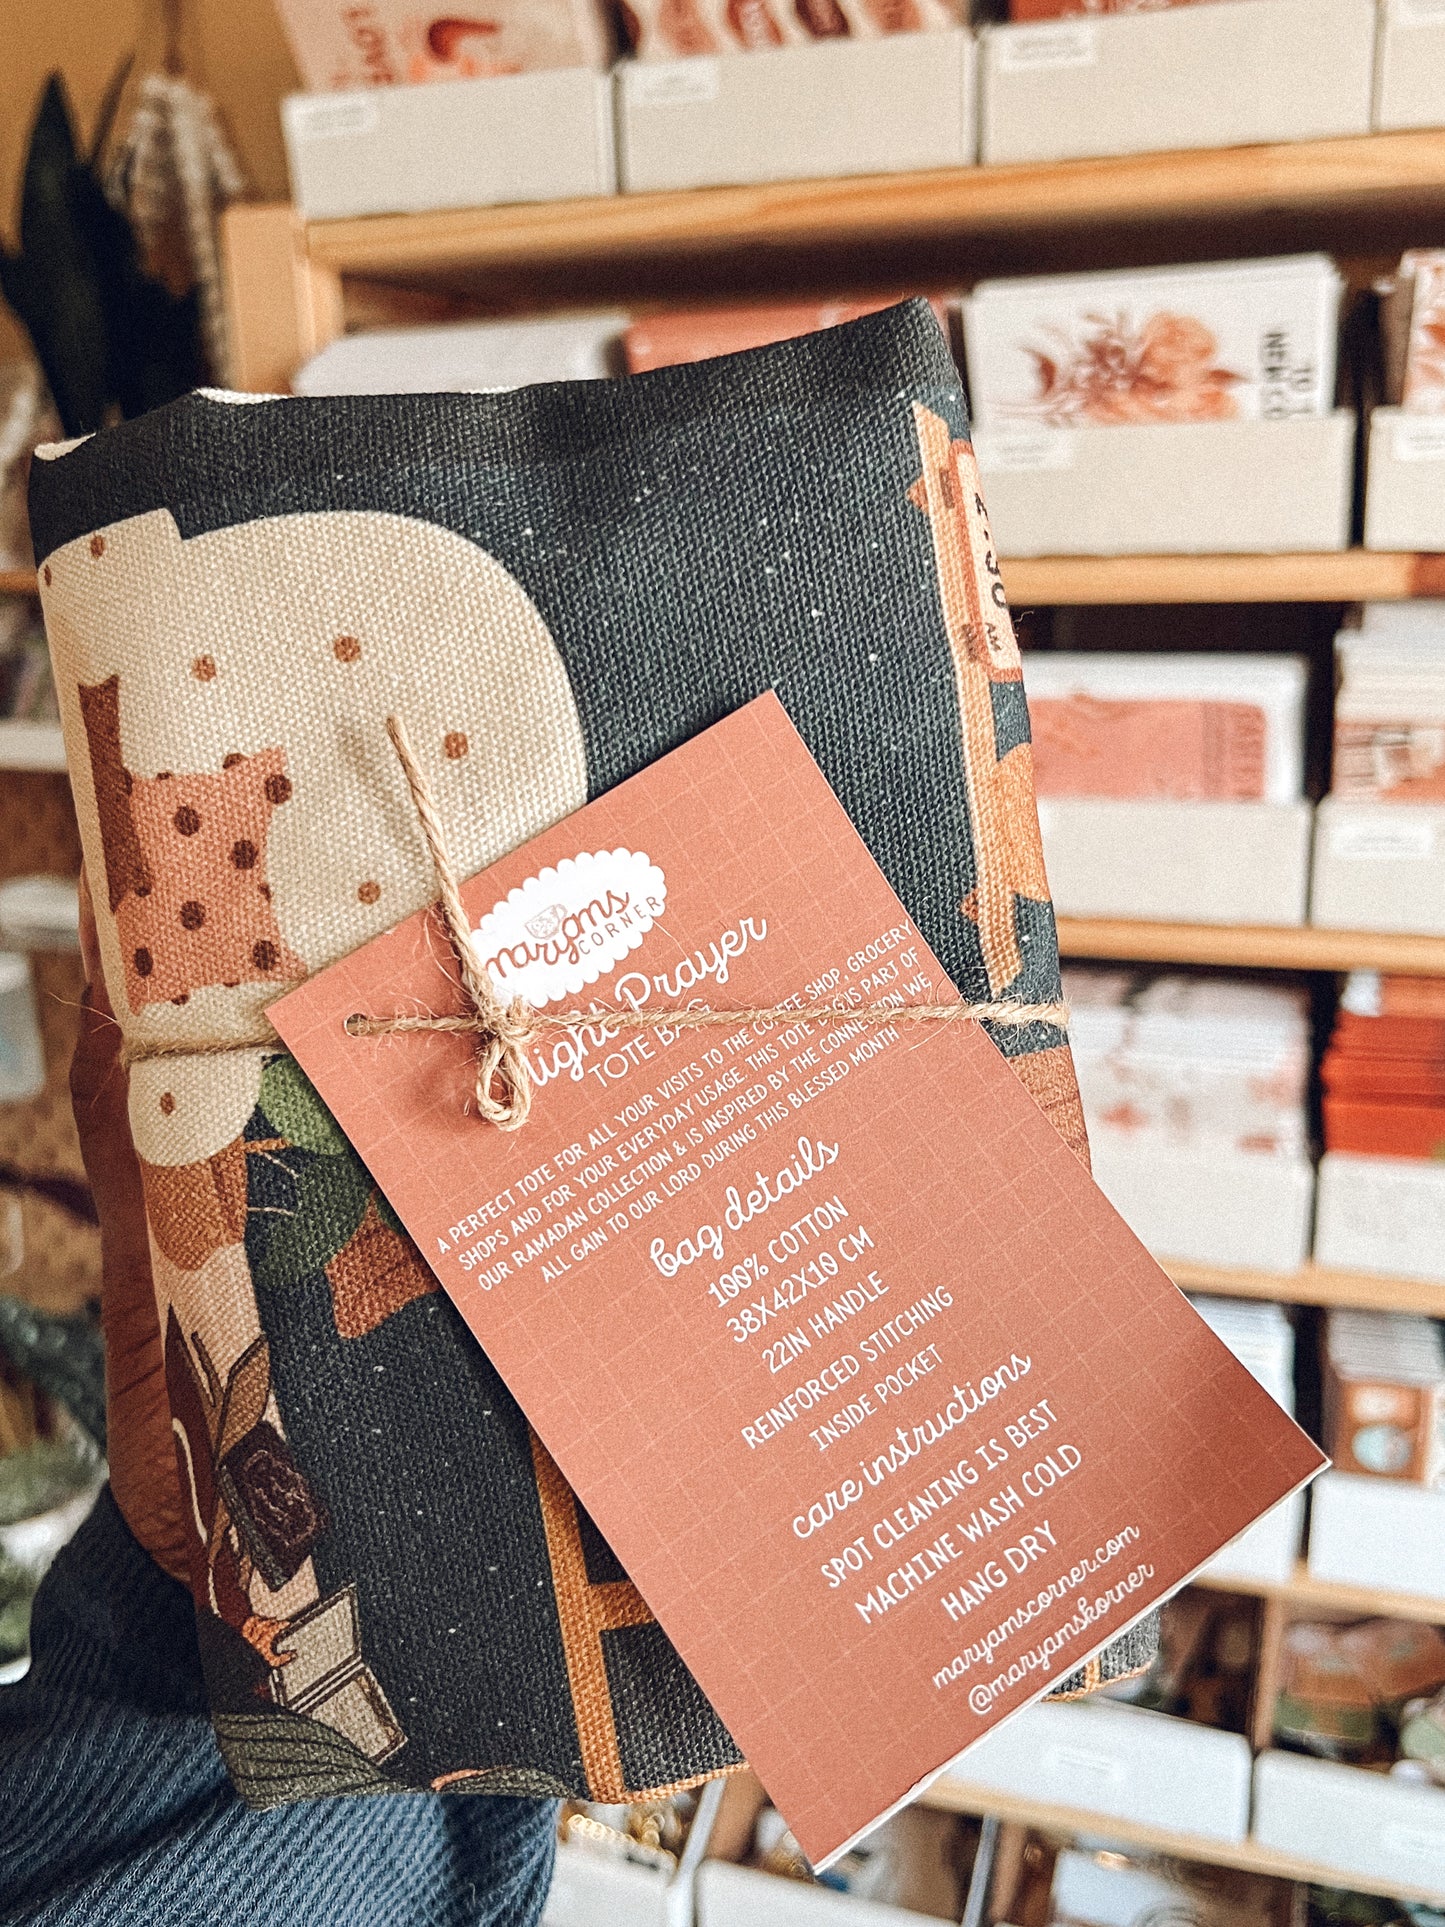 maryams
CORNER
Night Prayer
TOTE BAG
A PERFECT TOTE FOR ALL YOUR VISITS TO THE COFFEE SHOP, GROCERY
SHOPS AND FOR YOUR EVERYDAY USAGE. THIS TOTE BAG IS PART OF
OUR RAMADAN COLLECTION & IS INSPIRED BY THE CONNECTION WE
ALL GAIN TO OUR LORD DURING THIS BLESSED MONTH
bag details
100% COTTON
38X42X10 CM
22IN HANDLE
REINFORCED STITCHING
INSIDE POCKET
care instructions
SPOT CLEANING IS BEST
MACHINE WASH COLD
HANG DRY
maryamscorner.com
@maryamskorner
AM
LOVE